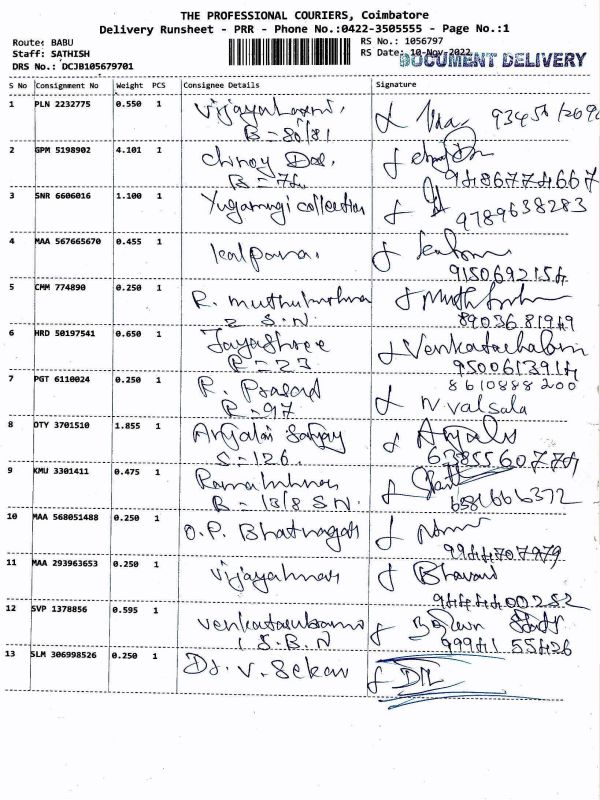 THE PROFESSIONAL COURIERS, Coimbatore
Delivery Runsheet - PRR - Phone No.:0422-3505555 - Page No.:1
Route: BABU
RS No.: 1056797
Staff: SATHISH
RS Date: 10-Nov-2022
DOCUMENT DELIVERY
DRS No.: DCJB105679701
S No Consignment No Weight PCS Consignee Details Signature
1 PLN 2232775 0.550 1 Vijayalaxmi,
B = 80/81
2 GPM 5198902 4.101 1 Chinoy
9486774667
3 SNR 6606016 1.100 1 collection
9789638283
4 MAA 567665670 0.455 1 kalpana.
9150692154
5 CMM 774890 0.250 1 R. muthukrishna
2 S.N. 8903681949
6 HRD 50197541 0.650 1 Jayashree Venkatachalam
R = 23 9500613914
7 PGT 6110024 0.250 1 R. Prasad 8610888200
R = 97 N valsala
8 OTY 3701510 1.855 1 Anjalai Sanjay
S = 126. 6385560774
9 KMU 3301411 0.475 1
B = 13/8 S.N. 6381666372
10 MAA 568051488 0.250 1 O.P. Bhatnagar
9944707979
11 MAA 293963653 0.250 1 Vijayakumar
9444400252
12 SVP 1378856 0.595 1
1 S.B.N 99941 55426
13 SLM 306998526 0.250 1 Dr. V. Sekar